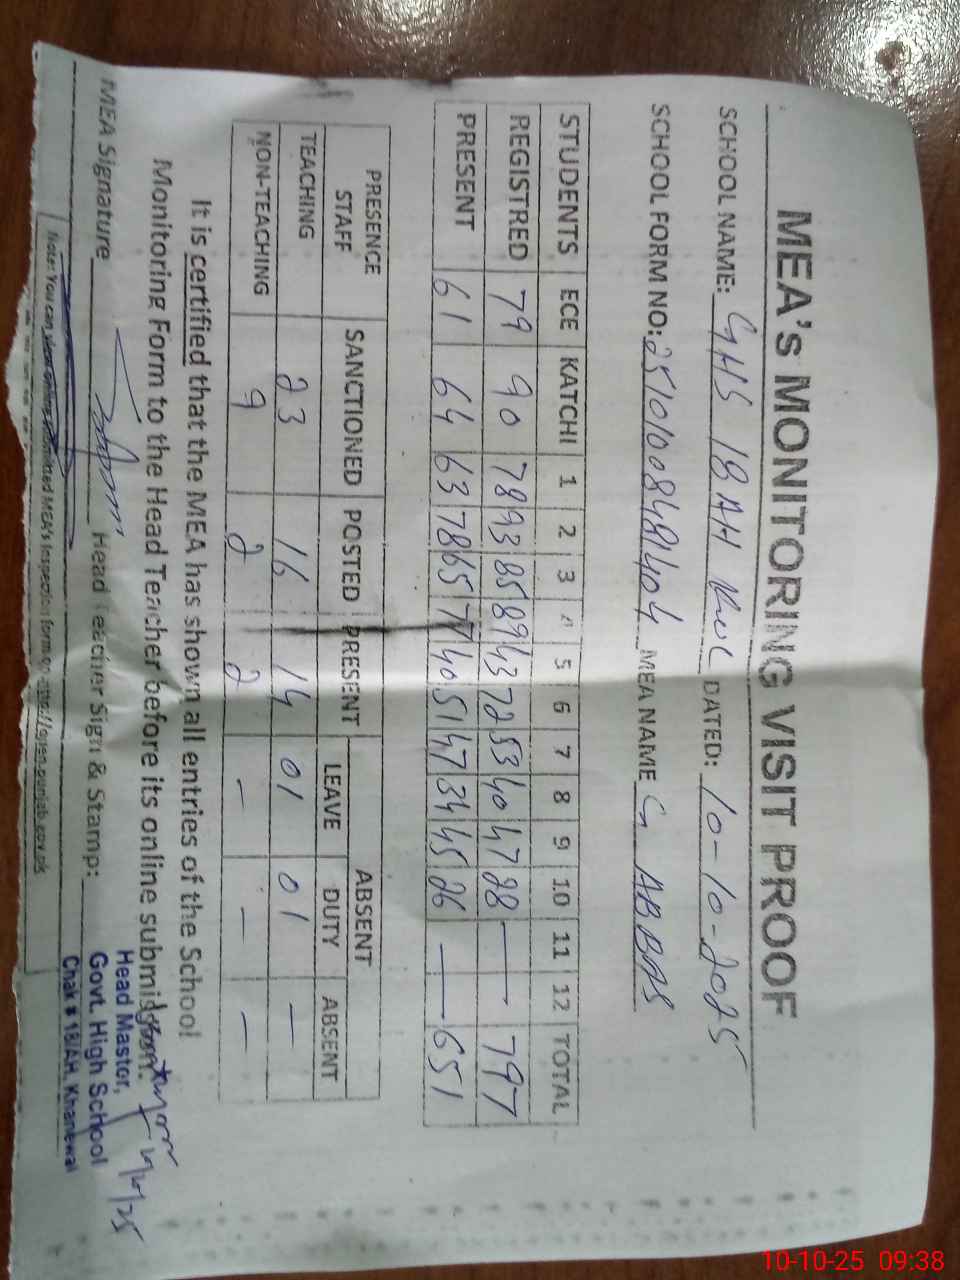 MEA's MONITORING VISIT PROOF
SCHOOL NAME: GHS 18 AH KWL DATED: 10-10-2025
SCHOOL FORM NO: 25101008481404 MEA NAME G ABBAS
STUDENTS ECE KATCHI 1 2 3 4 5 6 7 8 9 10 11 12 TOTAL
REGISTRED 79 90 78 93 85 89 43 72 53 40 47 28 — — 797
PRESENT 61 64 63 78 65 77 40 51 47 34 45 26 — — 651
PRESENCE STAFF SANCTIONED POSTED PRESENT ABSENT
LEAVE DUTY ABSENT
TEACHING 23 16 14 01 01 —
NON-TEACHING 9 2 2 — — —
It is certified that the MEA has shown all entries of the School
Monitoring Form to the Head Teacher before its online submission.
MEA Signature Head Teacher Sign & Stamp:
Head Mastor,
Govt. High School
Chak # 18/AH, Khanewal
Note: You can view online submitted MEA's Inspection form on http://open.punjab.gov.pk
10-10-25 09:38